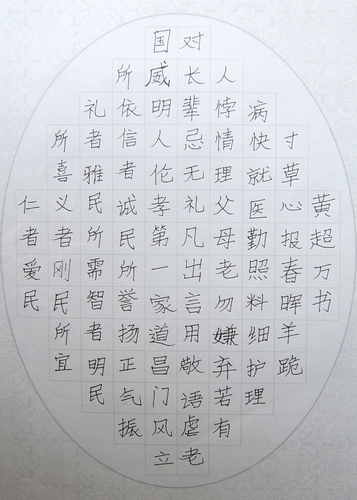 仁者爱民
所喜义者刚民所宜
礼者雅民所需智者明民
所依信者诚民所誉扬正气振
国威明人伦孝第一家道昌门风立
对长辈忌无礼凡出言用敬语虐老
人悖情理父母老勿嫌弃若有
病快就医勤照料细护理
寸草心报春晖羊跪
黄超万书